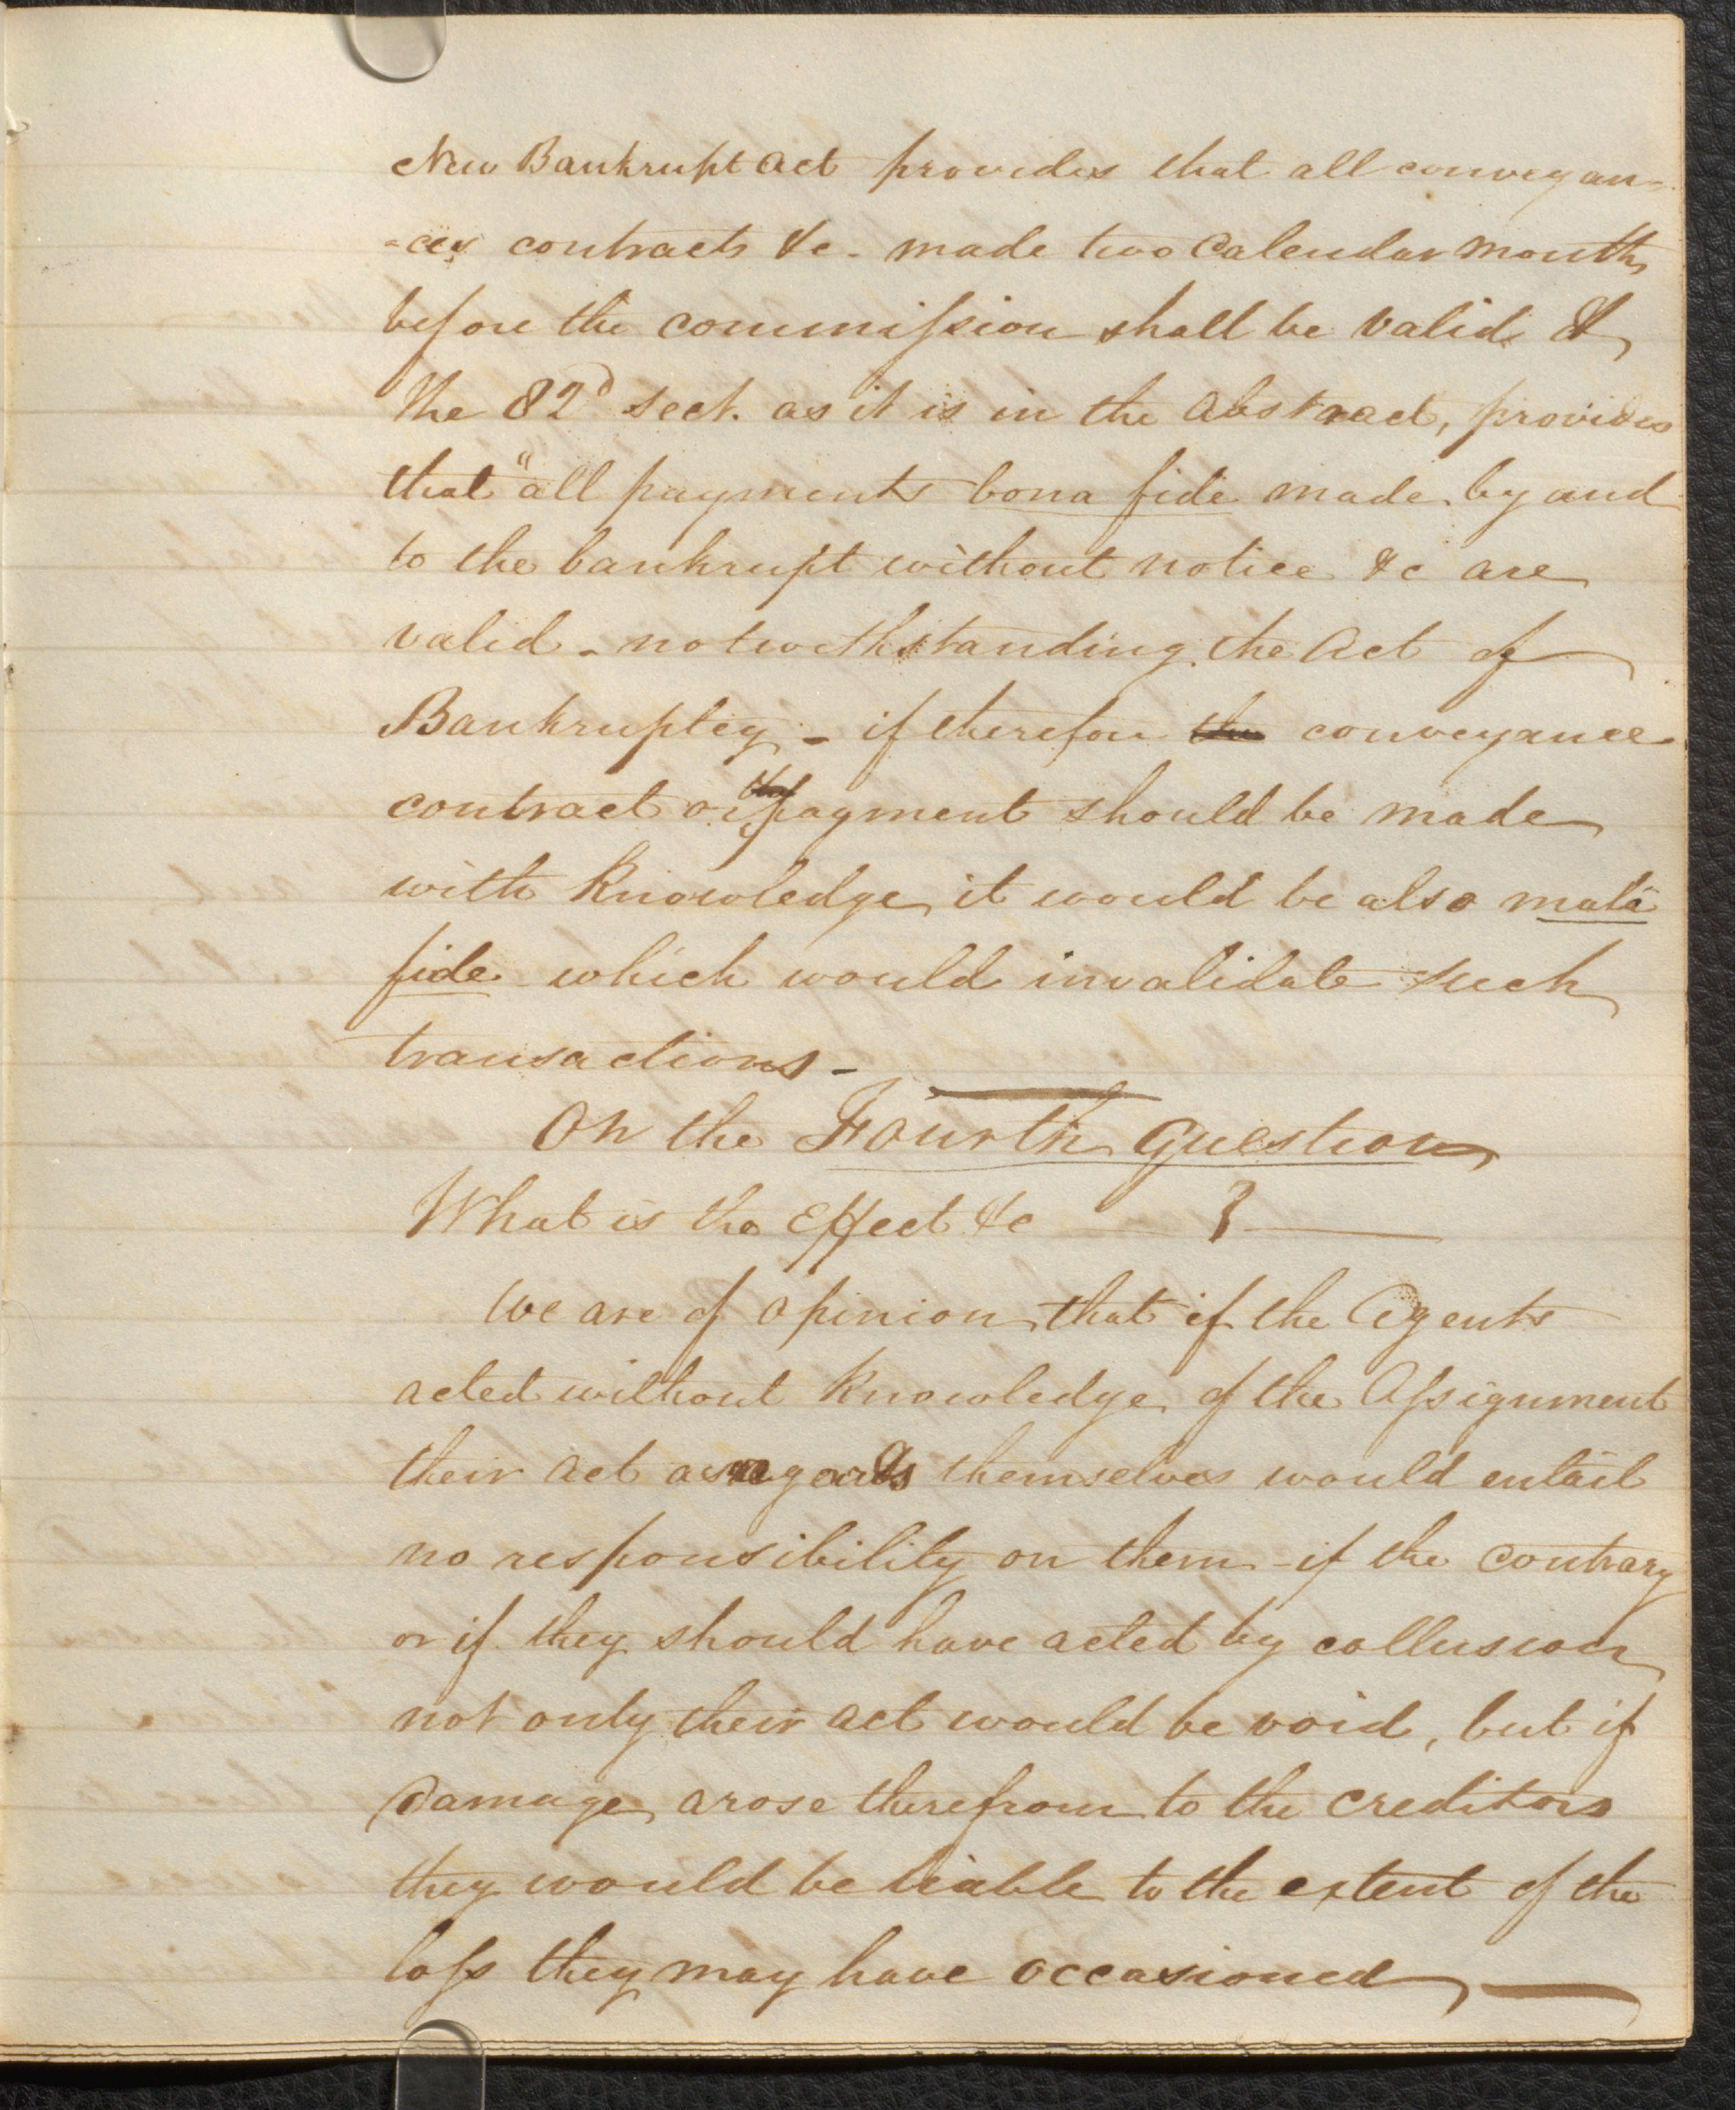 New Bankrupt Act provides that all conveyan-
-ces contracts &c - made two Calendar months
before the commission shall be valid &
the 82d sect. as it is in the abstract, provides
that "all payments bona fide made by and
to the bankrupt without notice &c are
valid - notwithstanding the Act of
Bankruptcy - if therefore the conveyance
contract or payment should be made
with knowledge it would be also mala
fide which would invalidate such
transactions -
On the Fourth Question
What is the Effect &c ?
We are of opinion that if the Agents
acted without knowledge of the Assignment
their act as regards themselves would entail
no responsibility on them - if the contrary
or if they should have acted by collusion
not only their act would be void, but if
Damage arose therefrom to the creditors
they would be liable to the extent of the
loss they may have occasioned —